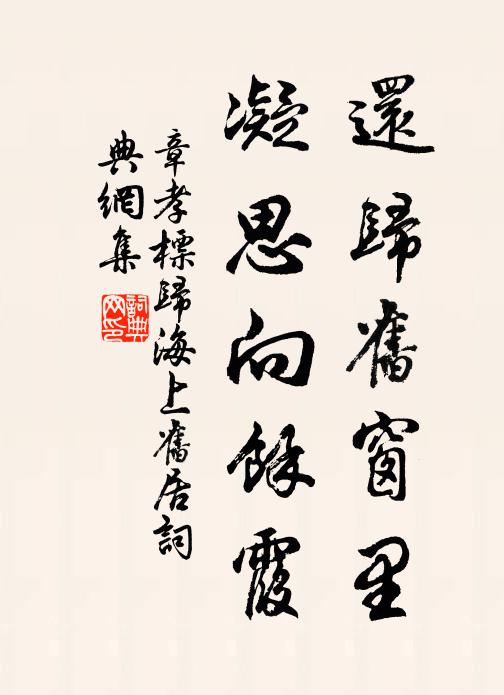 還歸舊窗里
凝思向餘霞
章孝標歸海上舊居詞
典網集
詞典
网印